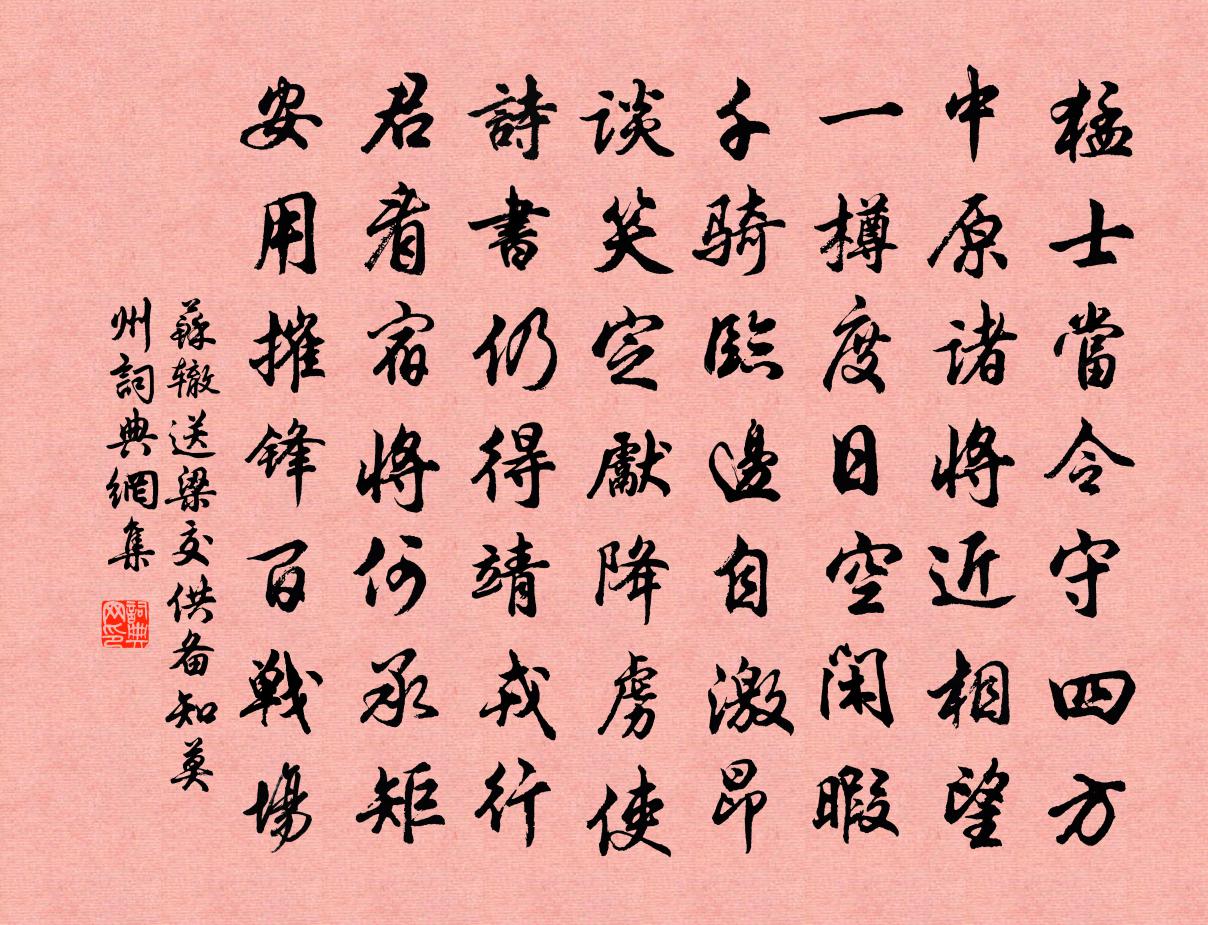 猛士當令守四方
中原諸將近相望
一樽度日空閑暇
千騎臨邊自激昂
談笑定獻降虜使
詩書仍得靖戎行
君看宿將何承矩
安用摧鋒百戰場
蘇轍送梁交供备知莫
州詞典網集
詞典网印